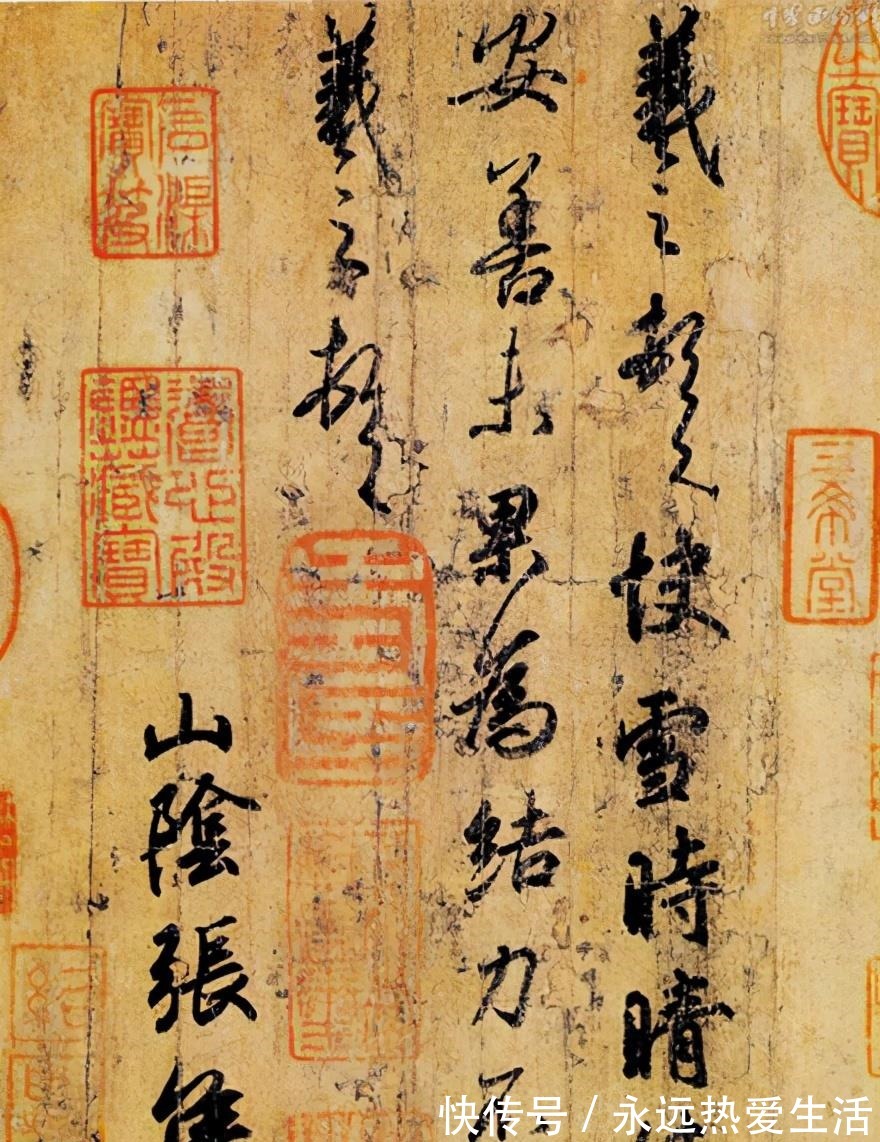 羲之頓首快雪時晴
安善未果為結力不
羲之頓首
山陰張侯
三希堂
石渠寶笈
養心殿鑑藏寶
快传号 / 永远热爱生活